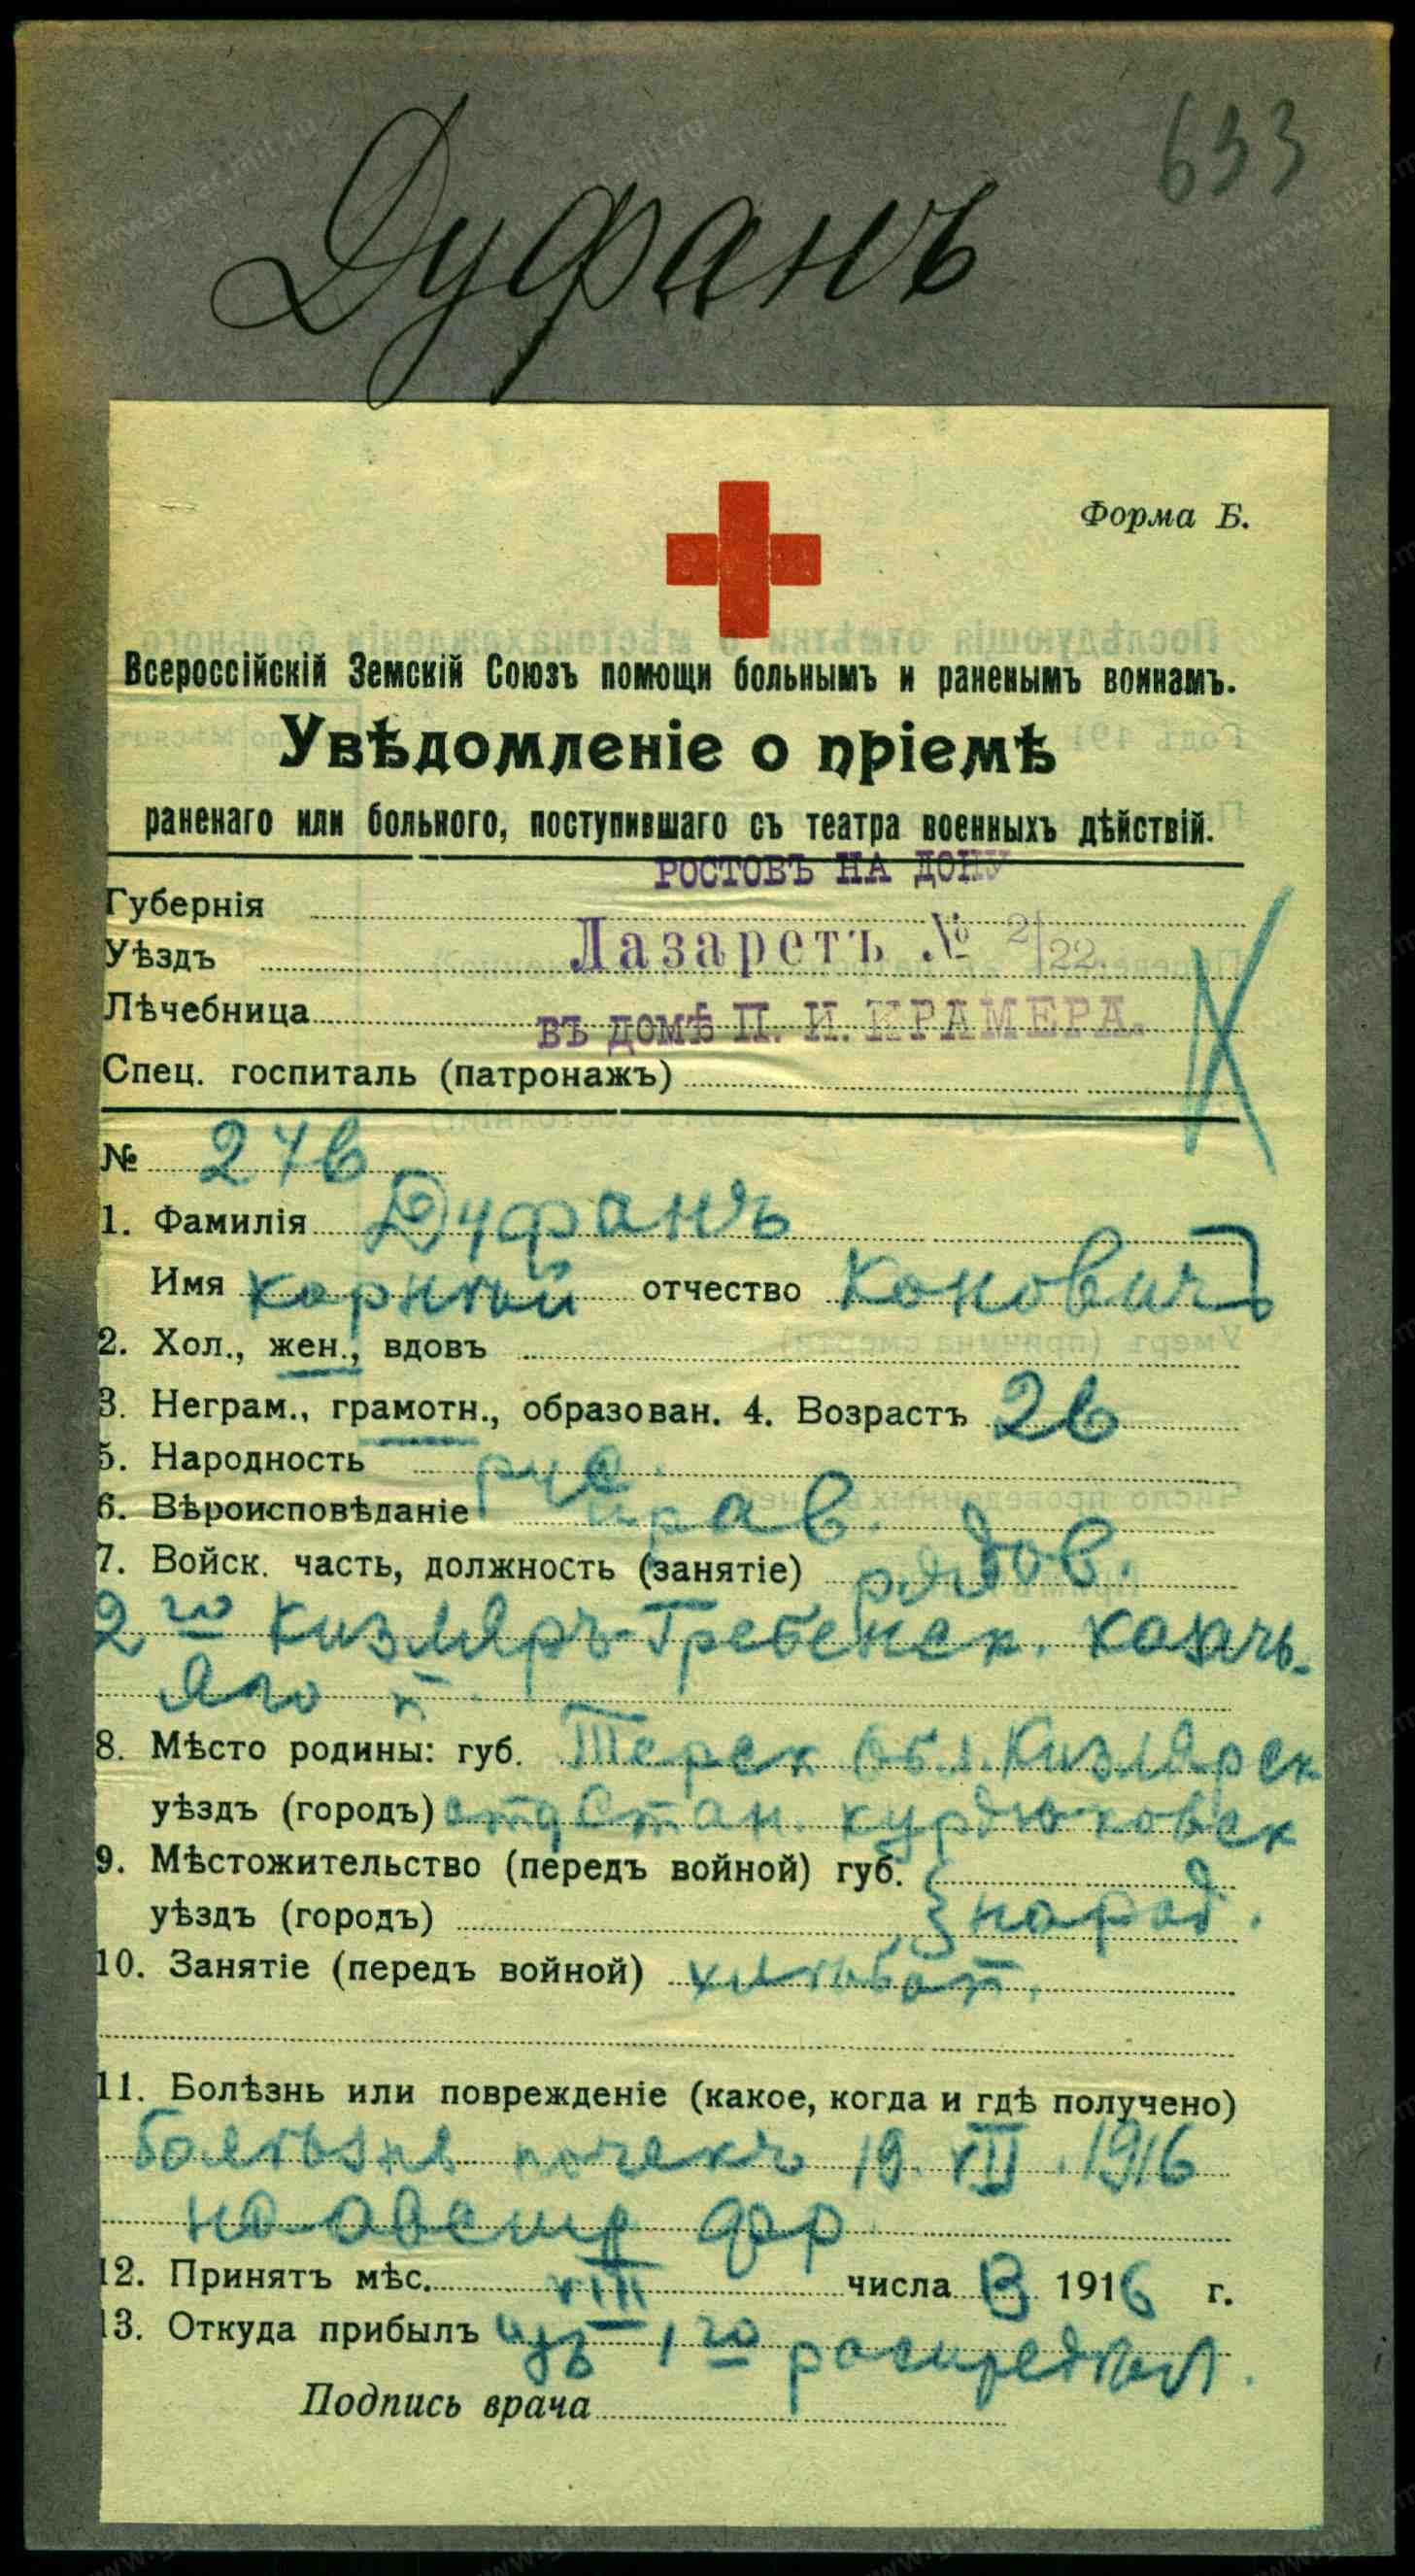 633
Дуфанъ
Форма Б.
Всероссійскій Земскій Союзъ помощи больнымъ и раненымъ воинамъ.
Увѣдомленіе о пріемѣ
раненаго или больного, поступившаго съ театра военныхъ дѣйствій.
РОСТОВЪ НА ДОНУ
Губернія
Уѣздъ Лазаретъ № 2/22.
Лѣчебница въ домѣ П. И. КРАМЕРА.
Спец. госпиталь (патронажъ)
№ 276
1. Фамилія Дуфанъ
Имя карный отчество Коновичъ
2. Хол., жен., вдовъ
3. Неграм., грамотн., образован. 4. Возрастъ 26
5. Народность рус.
6. Вѣроисповѣданіе прав.
7. Войск. часть, должность (занятіе) рядов.
2го Кизляръ-Гребенск. казачь-
яго п.
8. Мѣсто родины: губ. Терск обл. Кизлярск
уѣздъ (городъ) отд Стан. курдюковск
9. Мѣстожительство (передъ войной) губ.
уѣздъ (городъ)
10. Занятіе (передъ войной) хлѣбоп.
11. Болѣзнь или поврежденіе (какое, когда и гдѣ получено)
Болѣзнь почекъ 19. VII. 1916
на австр фр
12. Принятъ мѣс. VIII числа 13 1916 г.
13. Откуда прибылъ изъ 1го распредѣл.
Подпись врача